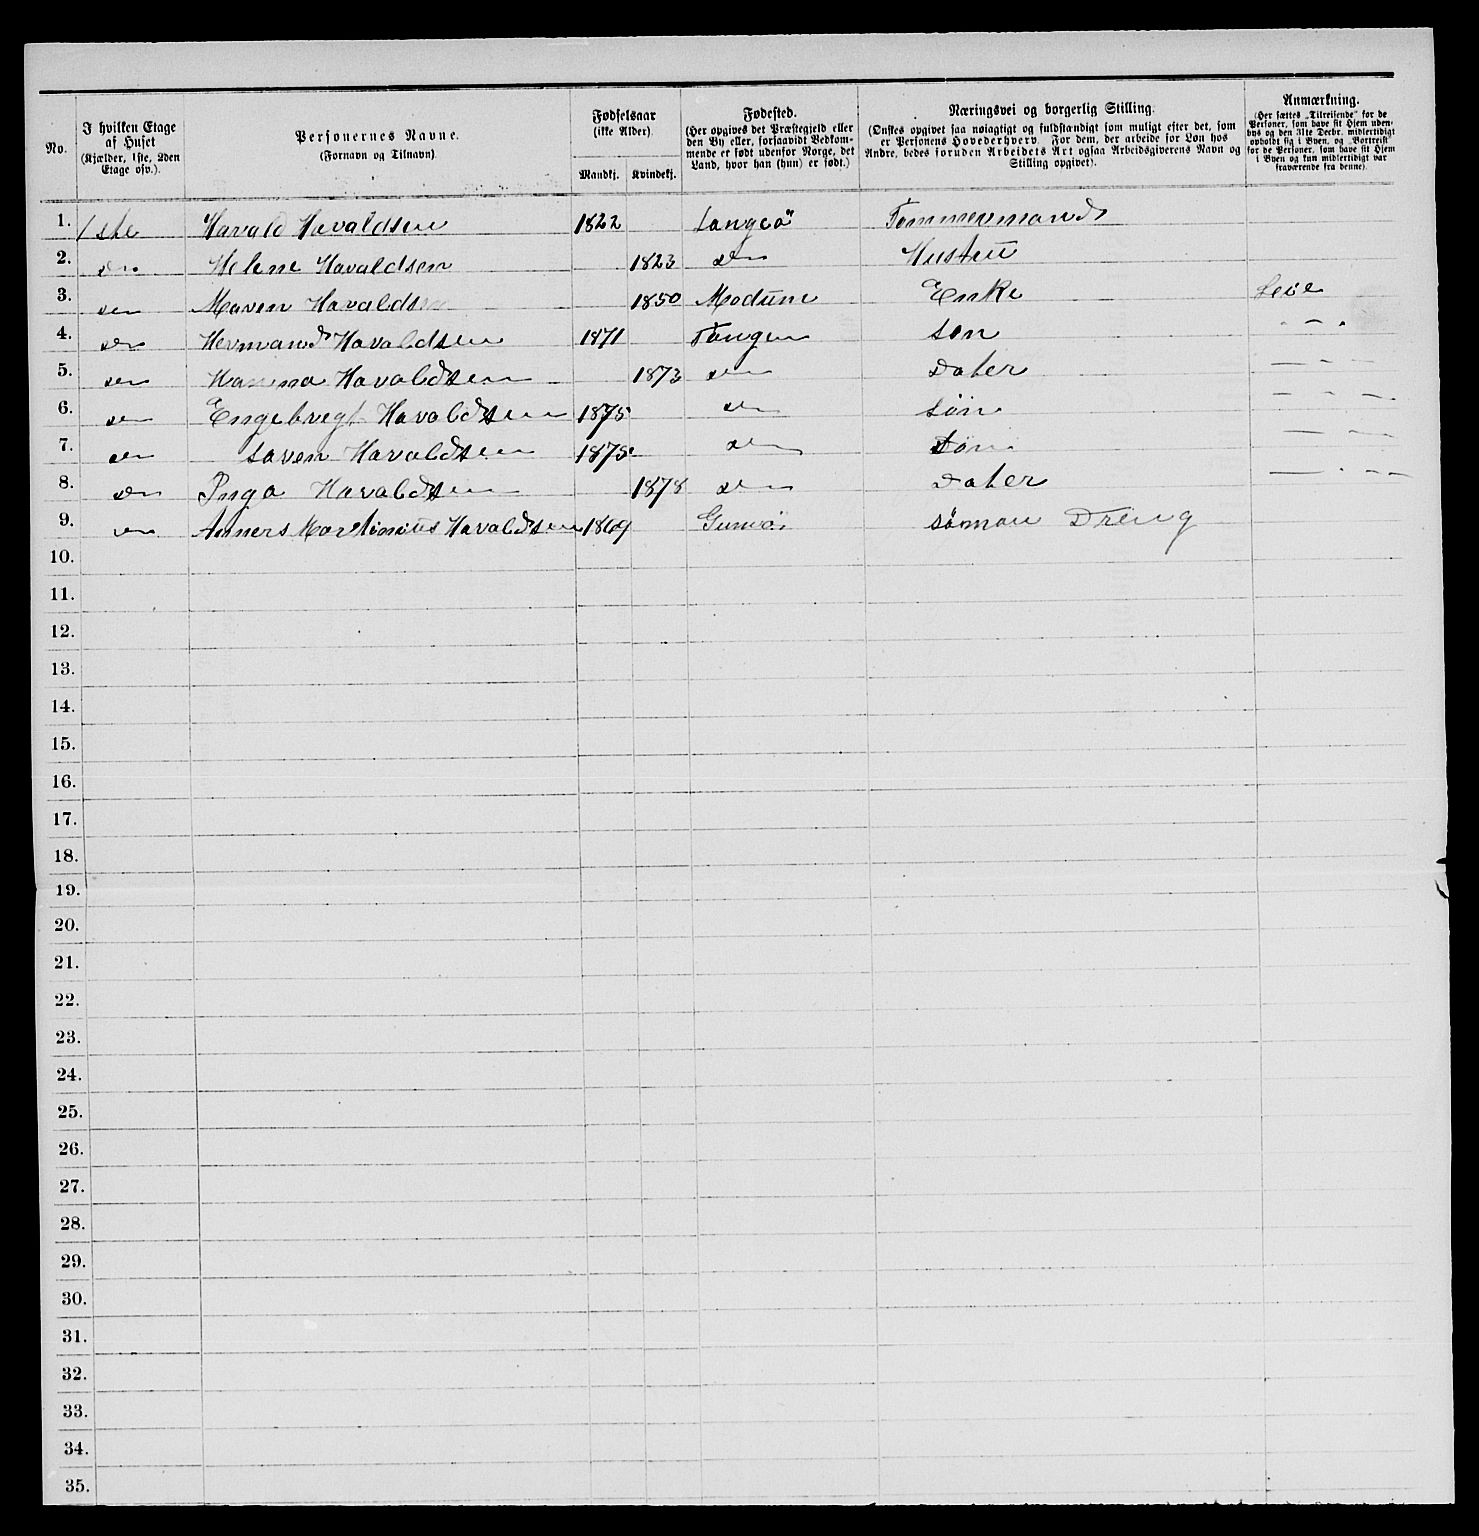 No.
I hvilken Etage af Huset (Kjælder, 1ste, 2den Etage osv.).
Personernes Navne. (Fornavn og Tilnavn)
Fødselsaar (ikke Alder).
Mandkj. Kvindekj.
Fødested. (Her opgives det Præstegjeld eller den By eller, forsaavidt Bedkommende er født udenfor Norge, det Land, hvor han (hun) er født.)
Næringsvei og borgerlig Stilling. (Ønskes opgivet saa nøiagtigt og fuldstændigt som muligt efter det, som er Personens Hovederhverv. For dem, der arbeide for Løn hos Andre, bedes foruden Arbeidets Art ogsaa Arbeidsgiverens Navn og Stilling opgivet).
Anmærkning. (Her sættes „Tilreisende“ for de Personer, som have sit Hjem udenbys og den 31te Decbr. midlertidigt opholdt sig i Byen, og „Bortreist“ for de Personer, som have sit Hjem i Byen og kun midlertidigt var fraværende fra denne).
1. 1ste Havald Havaldsen 1822 Langeö Tømmermand
2. den Helene Havaldsen 1823 den Hustru
3. den Maren Havaldsen 1850 Modum Enke
4. den Hermand Havaldsen 1871 Tangen søn - - -
5. den Hanna Havaldsen 1873 den dater - - -
6. den Engebregt Havaldsen 1875 den søn - - -
7. den Søren Havaldsen 1875 den søn - - -
8. den Inga Havaldsen 1878 den dater - - -
9. den Anners Martinius Havaldsen 1869 Gumøi söman Dreng
10.
11.
12.
13.
14.
15.
16.
17.
18.
19.
20.
21.
22.
23.
24.
25.
26.
27.
28.
29.
30.
31.
32.
33.
34.
35.